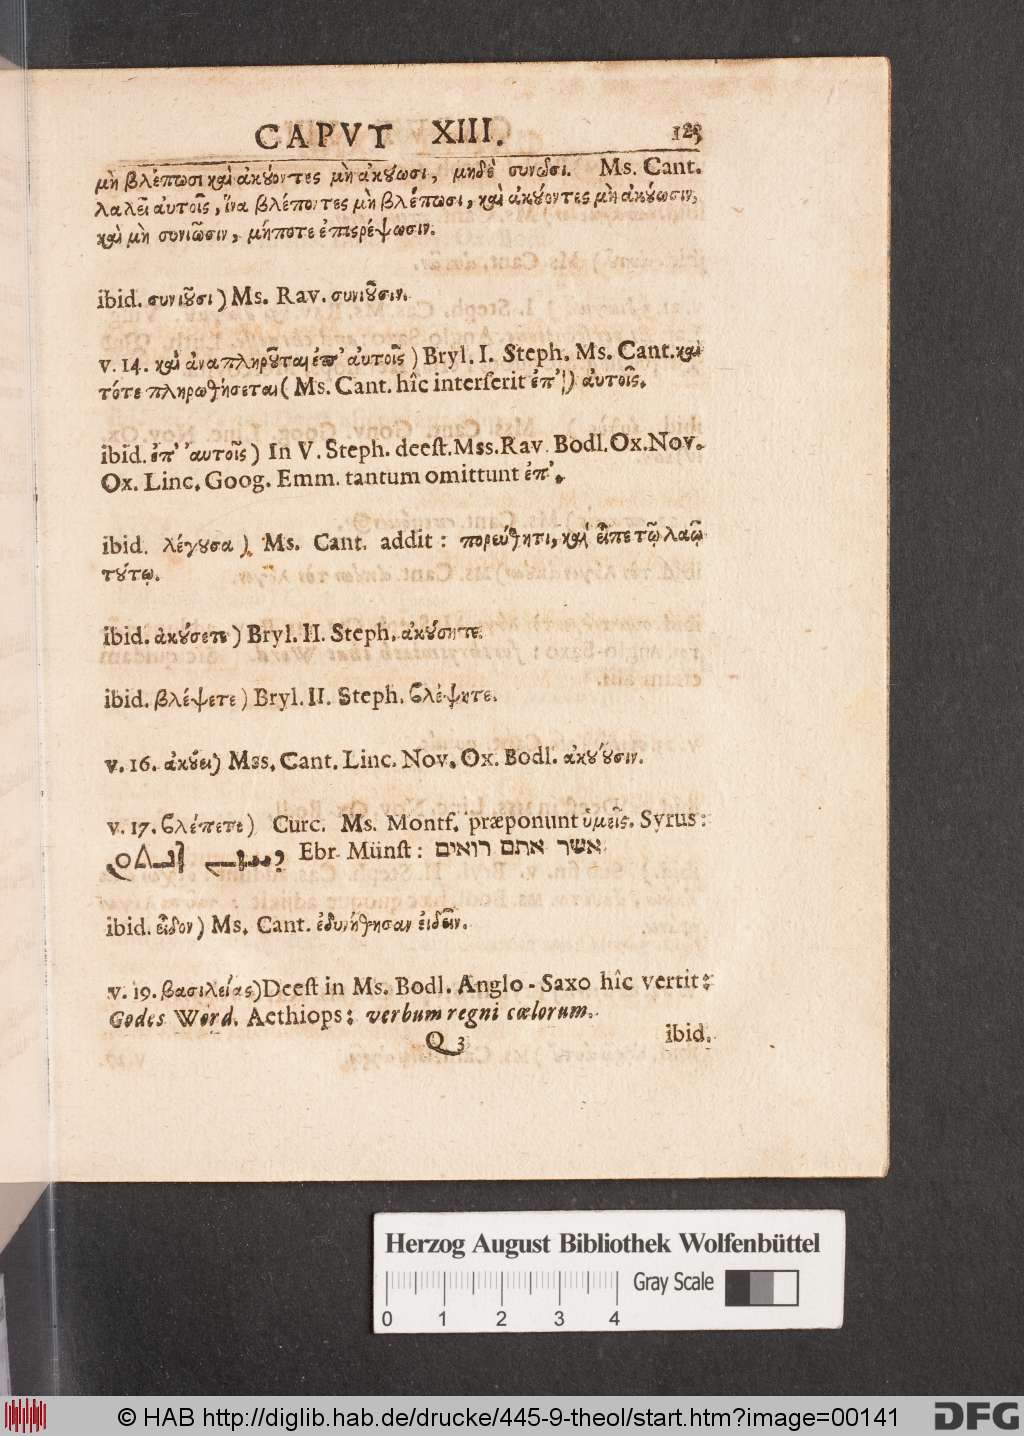 CAPVT XIII. 125
μὴ βλέπωσι καὶ ἀκούοντες μὴ ἀκούωσι, μηδὲ συνῶσι. Ms. Cant.
λαλεῖ αὐτοῖς, ἵνα βλέποντες μὴ βλέπωσι, καὶ ἀκούοντες μὴ ἀκούωσιν,
καὶ μὴ συνιῶσιν, μήποτε ἐπιστρέψωσιν.
ibid. συνιοῦσι) Ms. Rav. συνιοῦσιν.
v. 14. καὶ ἀναπληροῦται ἐπ' αὐτοῖς) Bryl. I. Steph. Ms. Cant. καὶ
τότε πληρωθήσεται (Ms. Cant. hîc interserit ἐπ') αὐτοῖς.
ibid. ἐπ' αυτοῖς) In V. Steph. deest. Mss. Rav. Bodl. Ox. Nov.
Ox. Linc. Goog. Emm. tantum omittunt ἐπ'.
ibid. λέγουσα) Ms. Cant. addit: πορεύθητι, καὶ εἶπε τῷ λαῷ
τούτῳ.
ibid. ἀκούσετε) Bryl. II. Steph. ἀκούσητε.
ibid. βλέψετε) Bryl. II. Steph. βλέψητε.
v. 16. ἀκούει) Mss. Cant. Linc. Nov. Ox. Bodl. ἀκούουσιν.
v. 17. βλέπετε) Curc. Ms. Montf. præponunt ὑμεῖς. Syrus:
Ebr. Münst: אשר אתם רואים
ibid. εἶδον) Ms. Cant. ἐδυνήθησαν ἰδεῖν.
v. 19. βασιλείας) Deest in Ms. Bodl. Anglo-Saxo hîc vertit:
Godes Word. Aethiops: verbum regni cœlorum.
Q 3 ibid.
Herzog August Bibliothek Wolfenbüttel
Gray Scale
0 1 2 3 4
© HAB http://diglib.hab.de/drucke/445-9-theol/start.htm?image=00141
DFG